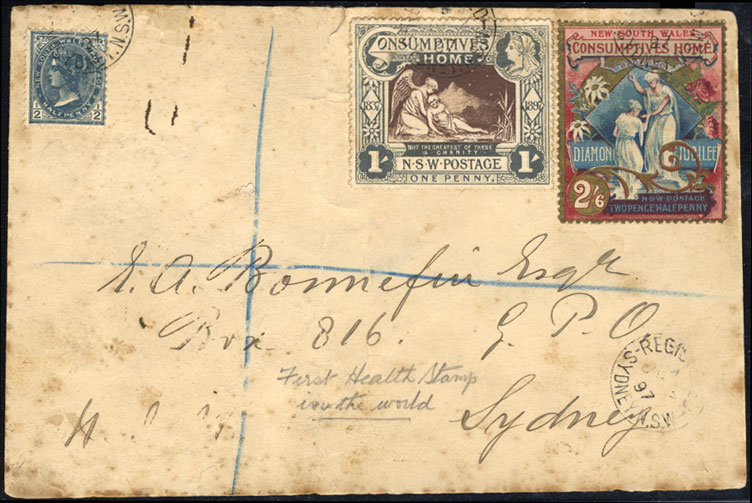 NEW SOUTH WALES
1/2 1/2
HALFPENNY
N.S.W
CONSUMPTIVES
HOME
1837 1897
BUT THE GREATEST OF THESE
IS CHARITY
1/- N·S·W·POSTAGE 1/-
ONE PENNY.
NEW SOUTH WALES
CONSUMPTIVES HOME
DIAMOND JUBILEE
2/6
N·S·W·POSTAGE
TWOPENCE HALFPENNY
E. A. Bonnefin Esqr
Box 816. G. P. O
First Health Stamp
in the world
Sydney
REGIS
97
SYDNEY N.S.W